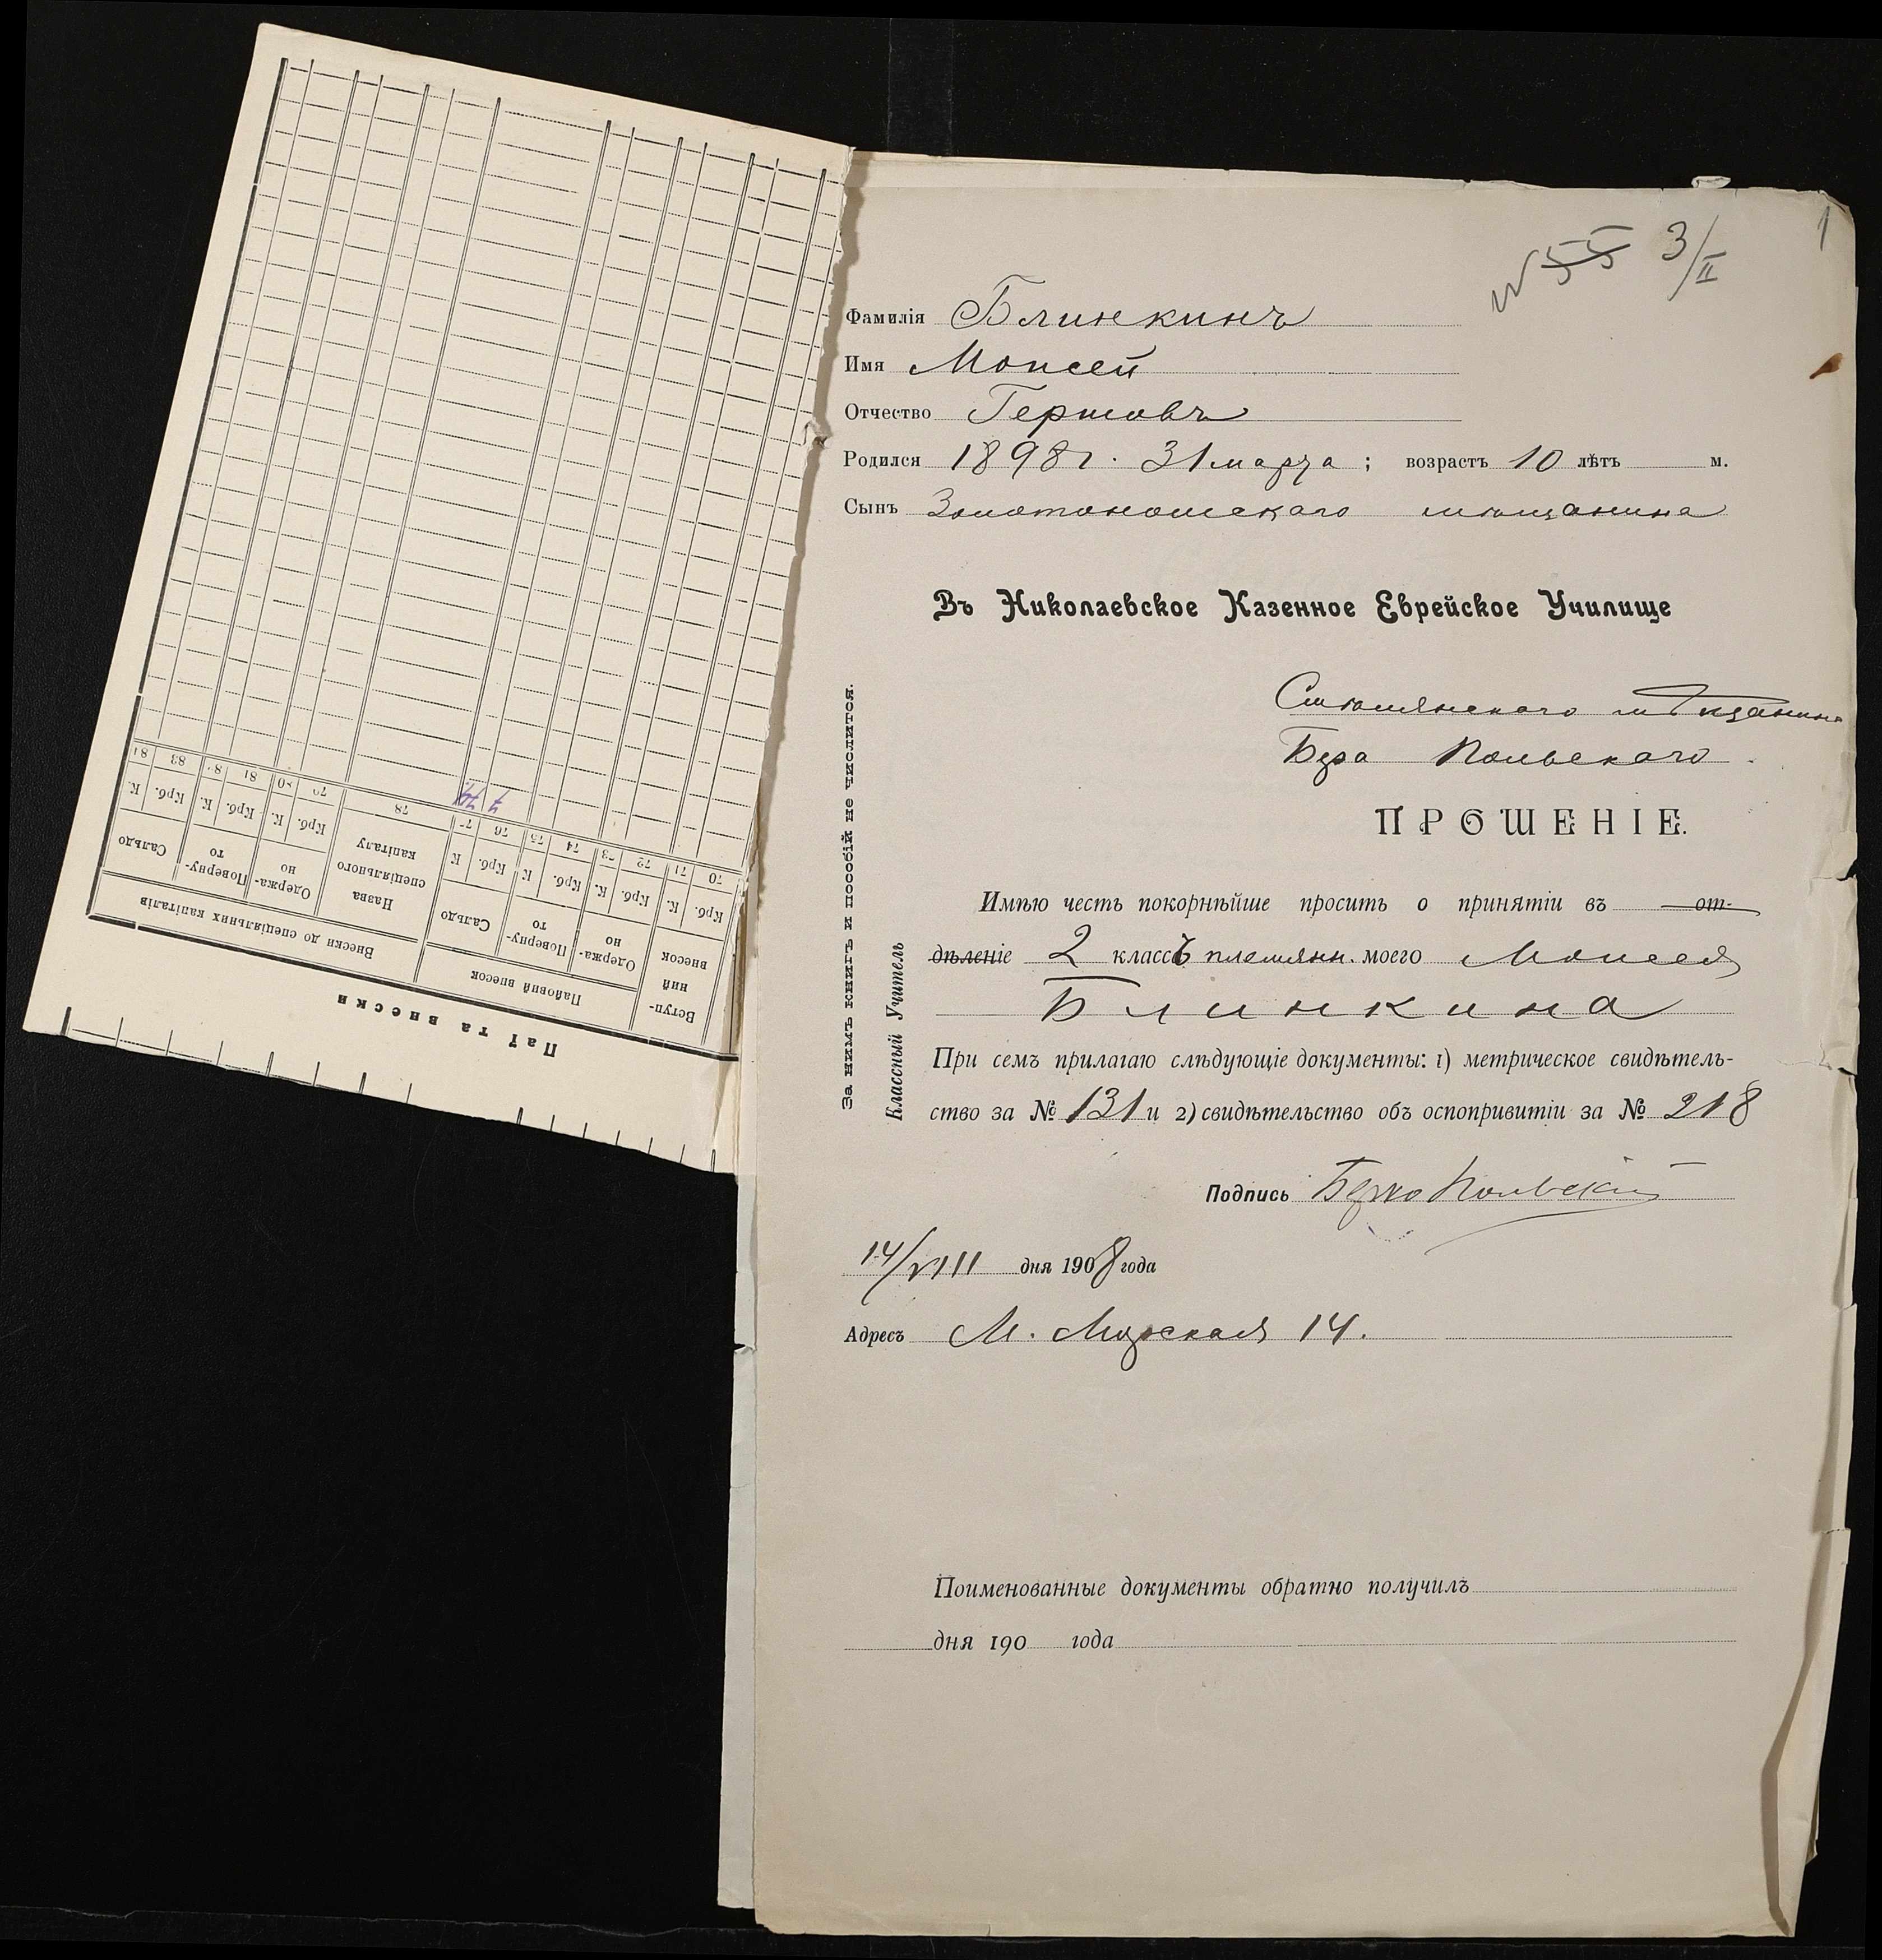 1
№ 55 3/II
Фамилія Блинкинъ
Имя Моисей
Отчество Гершовъ
Родился 1898 г. 31 марта ; возрастъ 10 лѣтъ м.
Сынъ Золотоношскаго мѣщанина
Въ Николаевское Казенное Еврейское Училище
мѣщанина
Бера Польскаго
ПРОШЕНІЕ.
Имѣю честь покорнѣйше просить о принятіи въ от-
дѣленіе 2 классъ племянн. моего Моисея
Блинкина
При семъ прилагаю слѣдующіе документы: 1) метрическое свидѣтель-
ство за № 131 и 2) свидѣтельство объ оспопривитіи за № 218
Подпись Берко Польскій
14/VIII дня 1908 года
Адресъ М. Морская 14.
Поименованные документы обратно получилъ
дня 190 года
За нимъ книгъ и пособій не числится.
Классный Учитель
Паї та внески
Вступ-
ний
внесок
Пайовий внесок
Внески до спеціяльних капіталів
Одержа-
но
Поверну-
то
Сальдо
Назва
спеціяльного
капіталу
Одержа-
но
Поверну-
то
Сальдо
Крб. К. Крб. К. Крб. К Крб. К Крб. К. Крб. К. Крб. К.
70 71 72 73 74 75 76 78 81 83